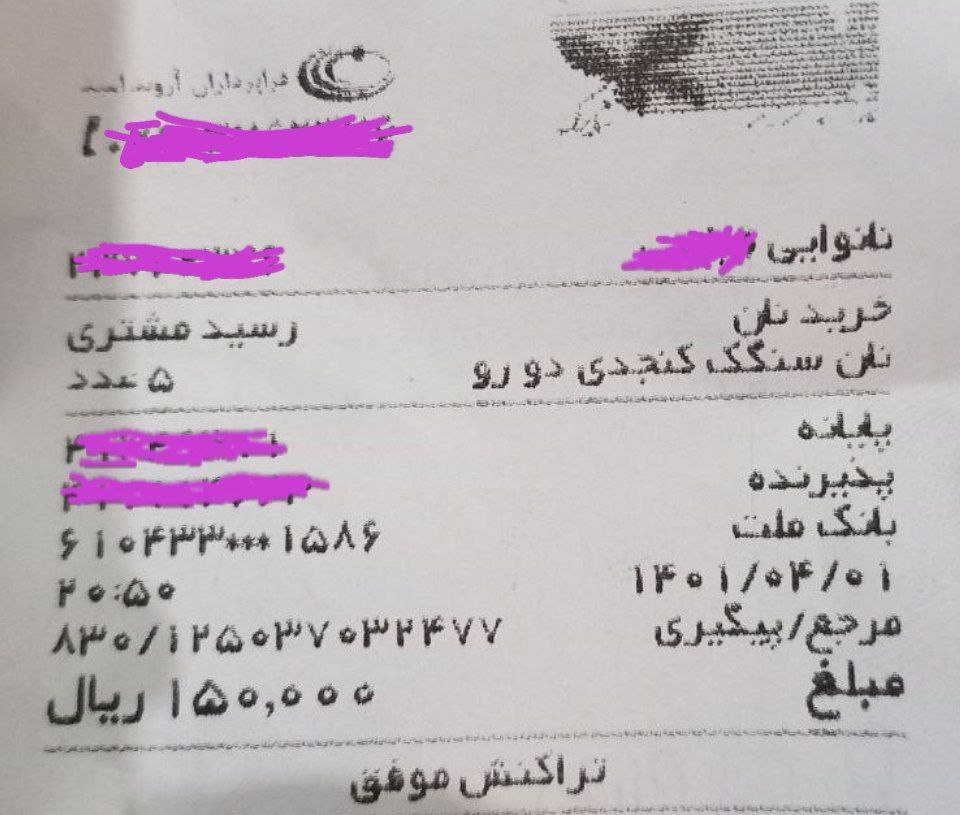 نانوایی
خرید نان رسید مشتری
نان سنگک کنجدی دو رو ۵ عدد
پایانه
پذیرنده
بانک ملت ۶۱۰۴۳۳***۱۵۸۶
۱۴۰۱/۰۴/۰۱ ۲۰:۵۰
مرجع/پیگیری ۸۳۰/۱۲۵۰۳۷۰۳۲۴۷۷
مبلغ ۱۵۰,۰۰۰ ریال
تراکنش موفق